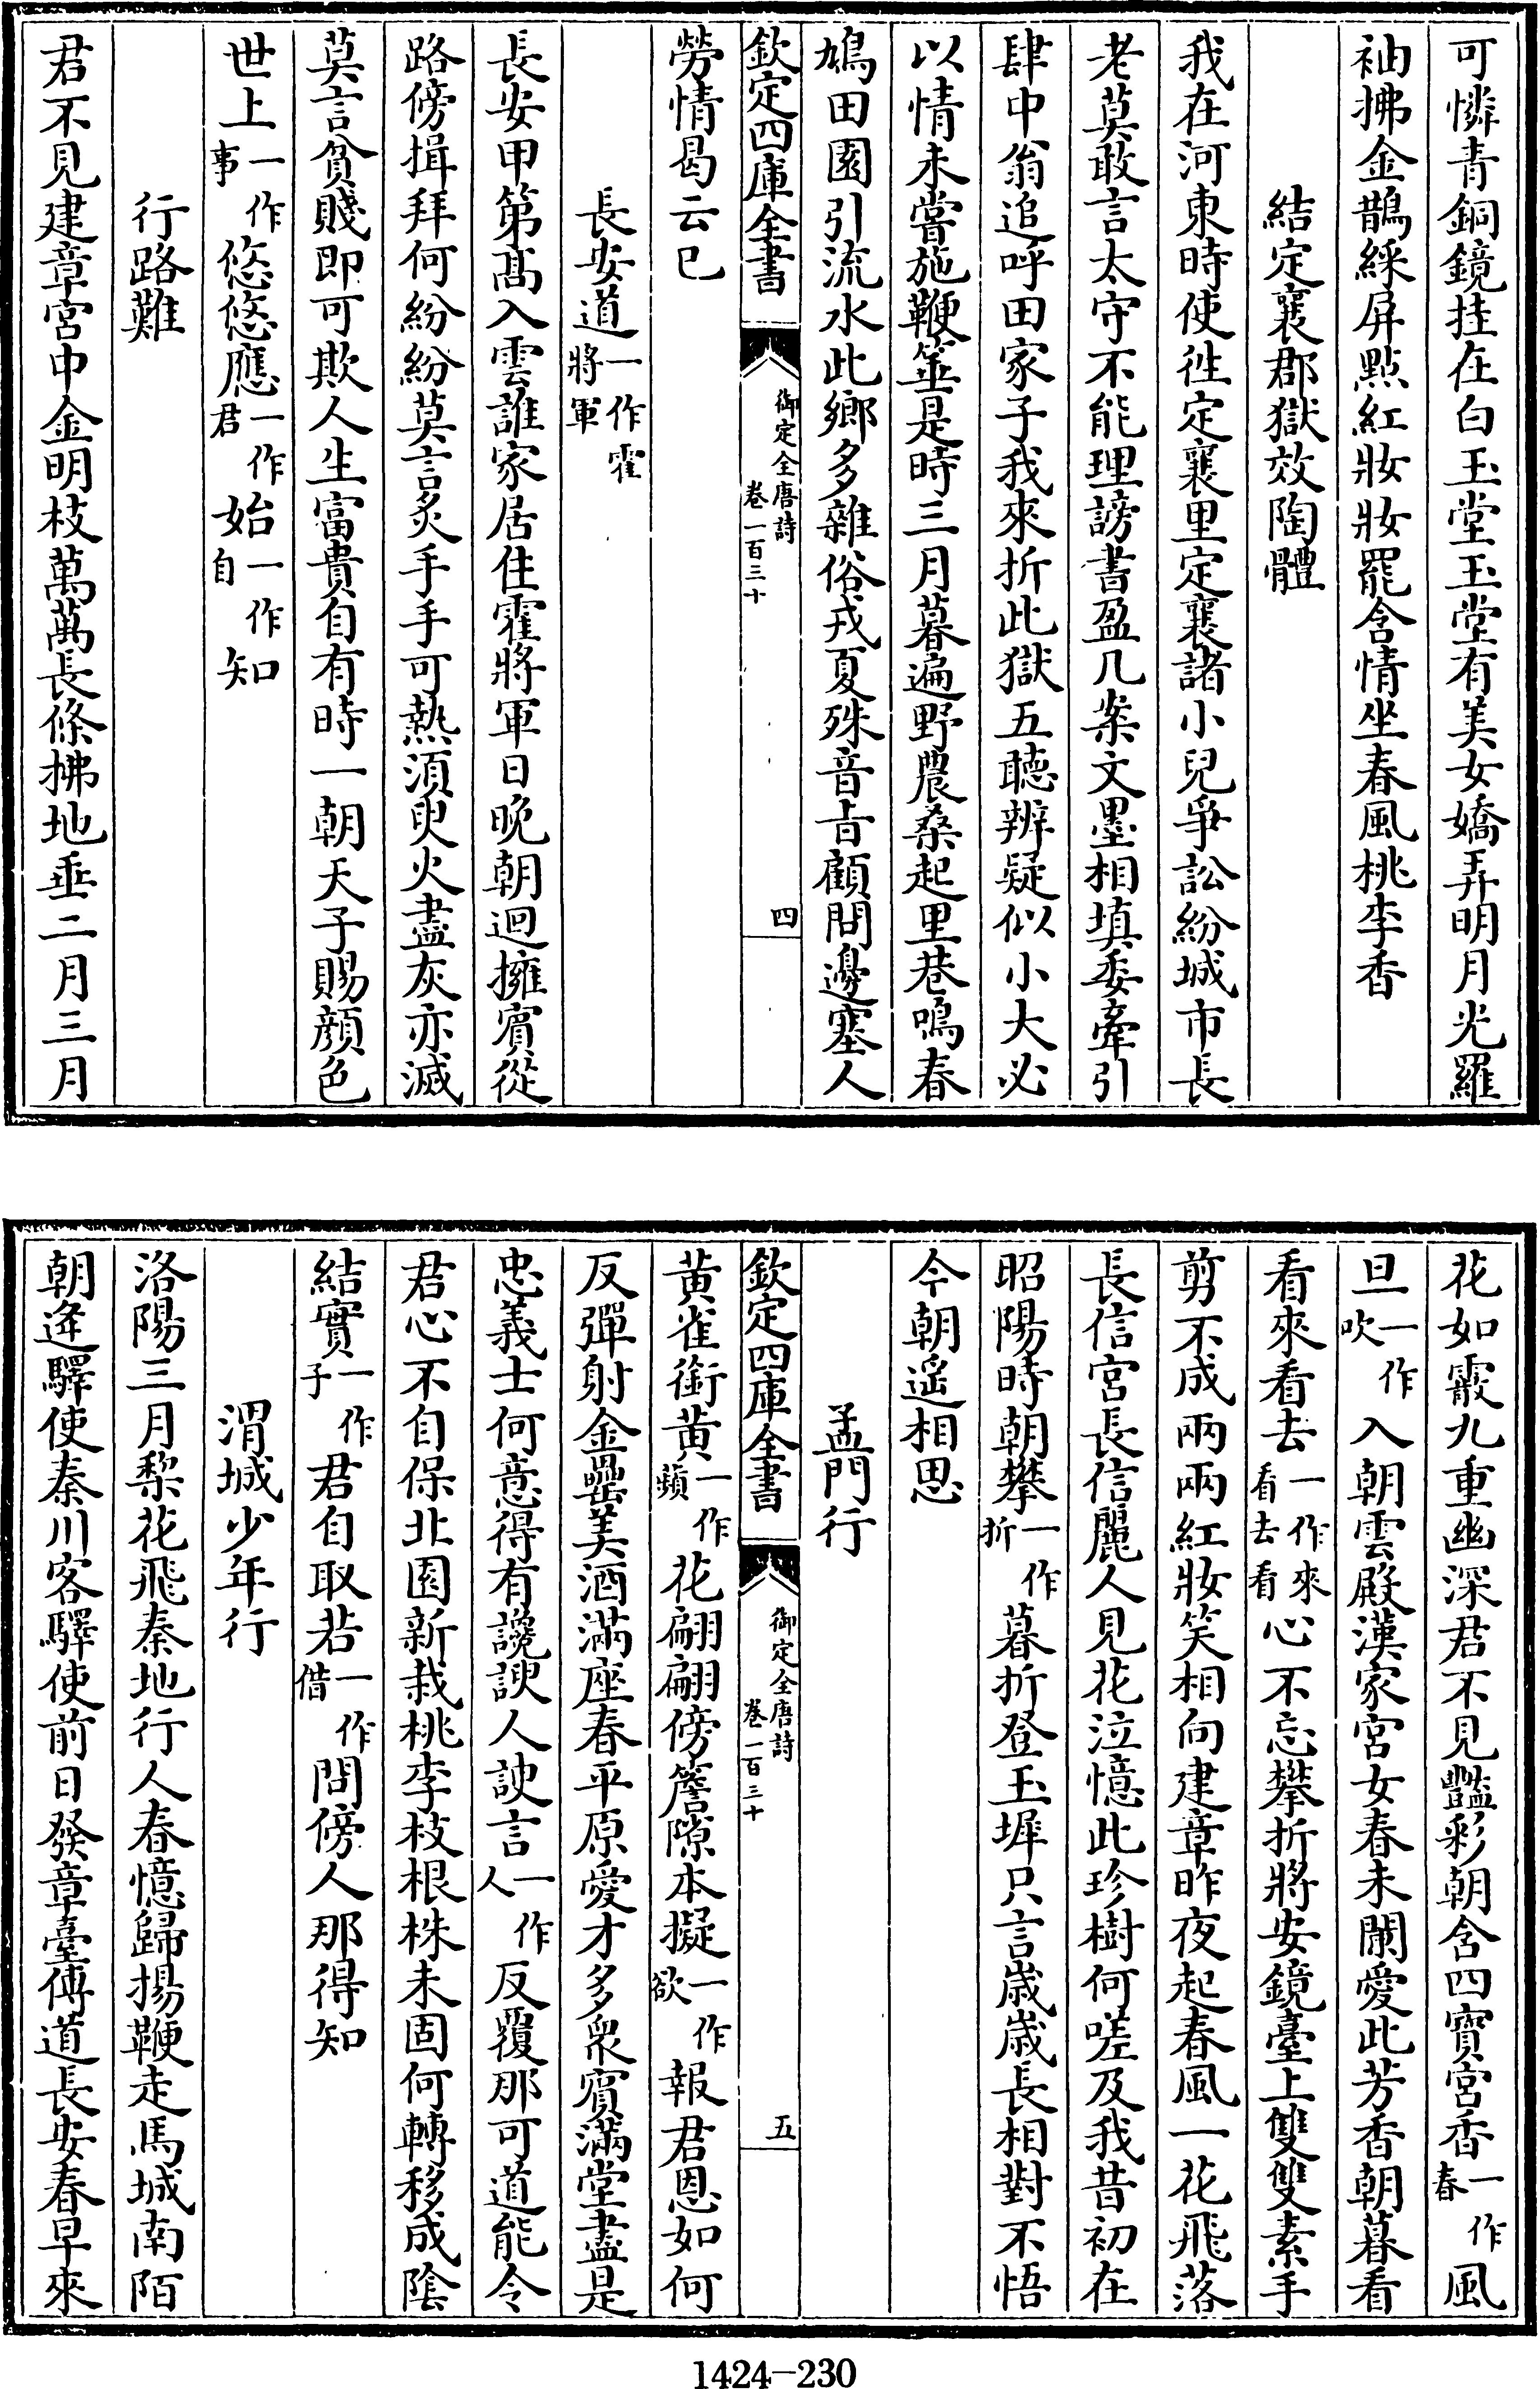 可憐青銅鏡挂在白玉堂玉堂有美女嬌弄明月光羅
袖拂金鵲綵屏點紅妝妝罷含情坐春風桃李香
結定襄郡獄效陶體
我在河東時使徃定襄里定襄諸小兒爭訟紛城市長
老莫敢言太守不能理謗書盈几案文墨相填委牽引
肆中翁追呼田家子我來折此獄五聴辨疑似小大必
以情未嘗施鞭箠是時三月暮遍野農桑起里巷鳴春
鳩田園引流水此鄉多雜俗戎夏殊音旨顧問邊塞人
欽定四庫全書 御定全唐詩 卷一百三十 四
勞情曷云已
長安道一作霍將軍
長安甲第髙入雲誰家居住霍將軍日晚朝迴擁賓從
路傍揖拜何紛紛莫言炙手手可熱須臾火盡灰亦滅
莫言貧賤即可欺人生富貴自有時一朝天子賜顔色
世上一作事悠悠應一作君始一作自知
行路難
君不見建章宮中金明枝萬萬長條拂地垂二月三月
花如霰九重幽深君不見豔彩朝含四寳宮香一作春風
旦一作吹入朝雲殿漢家宮女春未闌愛此芳香朝暮看
看來看去一作來看去看心不忘攀折將安鏡臺上雙雙素手
剪不成兩兩紅妝笑相向建章昨夜起春風一花飛落
長信宮長信麗人見花泣憶此珍樹何嗟及我昔初在
昭陽時朝攀一作折暮折登玉墀只言歳歳長相對不悟
今朝遥相思
孟門行
欽定四庫全書 御定全唐詩 卷一百三十 五
黄雀銜黄一作蘋花翩翩傍簷隙本擬一作欲報君恩如何
反彈射金罍美酒滿座春平原愛才多衆賓滿堂盡是
忠義士何意得有讒諛人諛言一作人反覆那可道能令
君心不自保北園新栽桃李枝根株未固何轉移成隂
結實一作子君自取若一作借問傍人那得知
渭城少年行
洛陽三月梨花飛秦地行人春憶歸揚鞭走馬城南陌
朝逄驛使秦川客驛使前日發章臺傳道長安春早來
1424-230